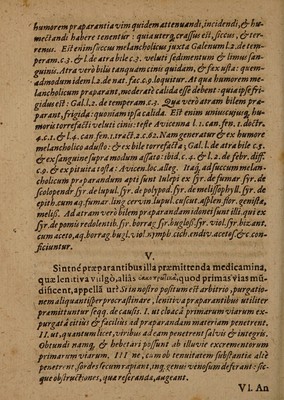 humorem præparantia vim quidem attenuandi, incidendi, & hu-
mectandi habere tenentur : quia uterq; crassus est, siccus, & ter-
renus. Est enim succus melancholicus juxta Galenum l.2. de tem-
peram. c.3. & l. de atra bile c.3. veluti sedimentum & limus san-
guinis. Atra verò bilis tanquam cinis quidam, & fax usta: quem-
admodum idem l.2. de nat. fac. c.9. loquitur. At qua humorem me-
lancholicum præparant, moderatè calida esse debent: quia ipse fri-
gidus est : Gal. l.2. de temperam. c.3. Qua verò atram bilem præ-
parant, frigida: quoniam ipsa calida. Est enim uniuscujusq; hu-
moris torrefacti veluti cinis: teste Avicenna l.1. can. fen. 1. doctr.
4. c.1. & l.4. can. fen. 1. tract. 2. c.62. Nam generatur & ex humore
melancholico adusto : & ex bile torrefacta; Gal. l. de atra bile c.5.
& ex sanguine supra modum assato: ibid. c.4. & l.2. de febr. diff.
c.9. & ex pituita tosta : Avicen. loc. alleg. Itaq; ad succum melan-
cholicum præparandum apti sunt Julepi ex syr. de fumar. syr. de
scolopendr. syr. de lupul. syr. de polypod. syr. de melissophyll. syr. de
epith. cum aq. fumar. ling. cervin. lupul. cuscut. asplen. flor. genista,
meliss. Ad atram verò bilem præparandam idonei sunt illi, qui ex
syr. de pomis redolentib. syr. borrag. syr. bugloss. syr. viol. syr. bizant.
cum aceto, aq. borrag. bugl. viol. nymph. cich. endiv. acetos. & c. con-
ficiuntur.
V.
Sintnè præparantibus illa præmittenda medicamina,
quæ lenitiva vulgò, aliàs quod primas vias mū-
dificent, appellāt? Si in nostro positum est arbitrio, purgatio-
nem aliquantisper procrastinare, lenitiva præparantibus utiliter
præmittuntur seqq. de causis. I. ut cloacâ primarum viarum ex-
purgatâ citius & facilius ad præparandam materiam penetrent.
II. ut, quantum licet, viribus ad eam penetrent salvis & integris.
Obtundi namq; & hebetari possunt ab illuvie excrementorum
primarum viarum. III ne, cum ob tenuitatem substantiæ altè
penetrent, sordes secum rapiant, inq; genus venosum deferant : sic-
que obstructiones, qua referanda, augeant.
VI. An